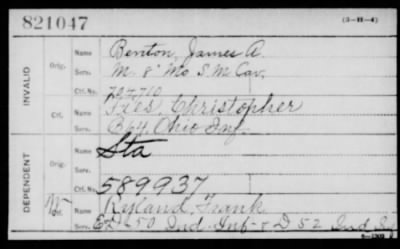 821047
(3-11-4)
INVALID
Orig.
Name Benton, James A.
Serv. M. 8" Mo. S. M. Cav.
Ctf. No. 724,710
Ctf.
Name Christopher
Serv. B 64 Ohio Inf
DEPENDENT
Orig.
Name Sta
Serv.
Ctf. No. 589937
Name Ryland, Frank
Serv. E 50 Ind. Inf - & D 52 Ind. I